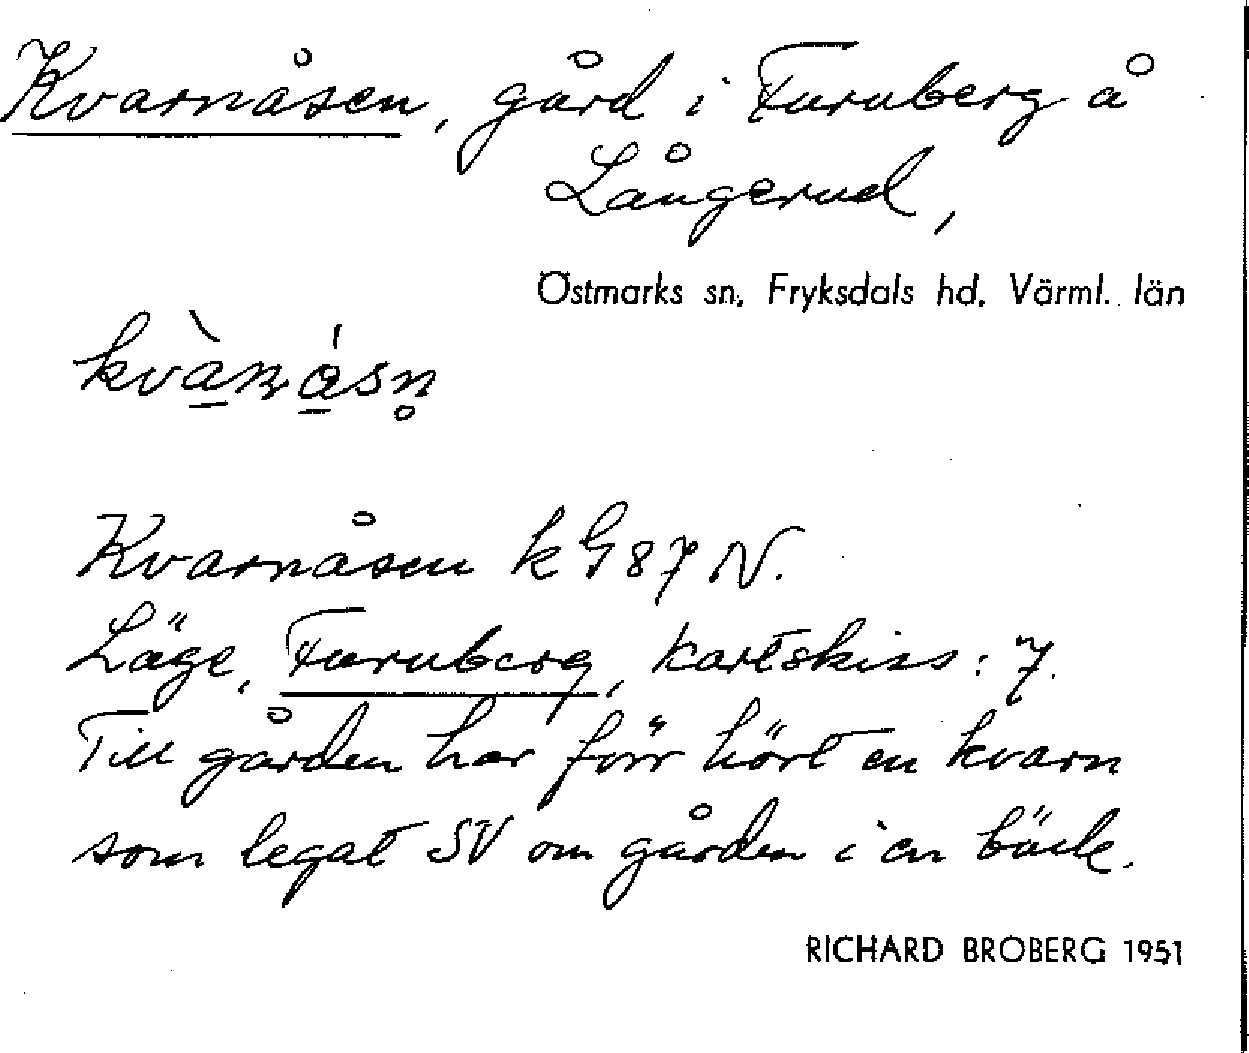 Kvarnåsen, gård i Furuberg å
Långerud,
Östmarks sn, Fryksdals hd. Värml. län
kvàn̠åsn̥
Kvarnåsen k G 87 N.
Läge, Furuberg, kartskiss: 7.
Till gården har förr hört en kvarn
som legat SV om gården i en bäck.
RICHARD BROBERG 1951